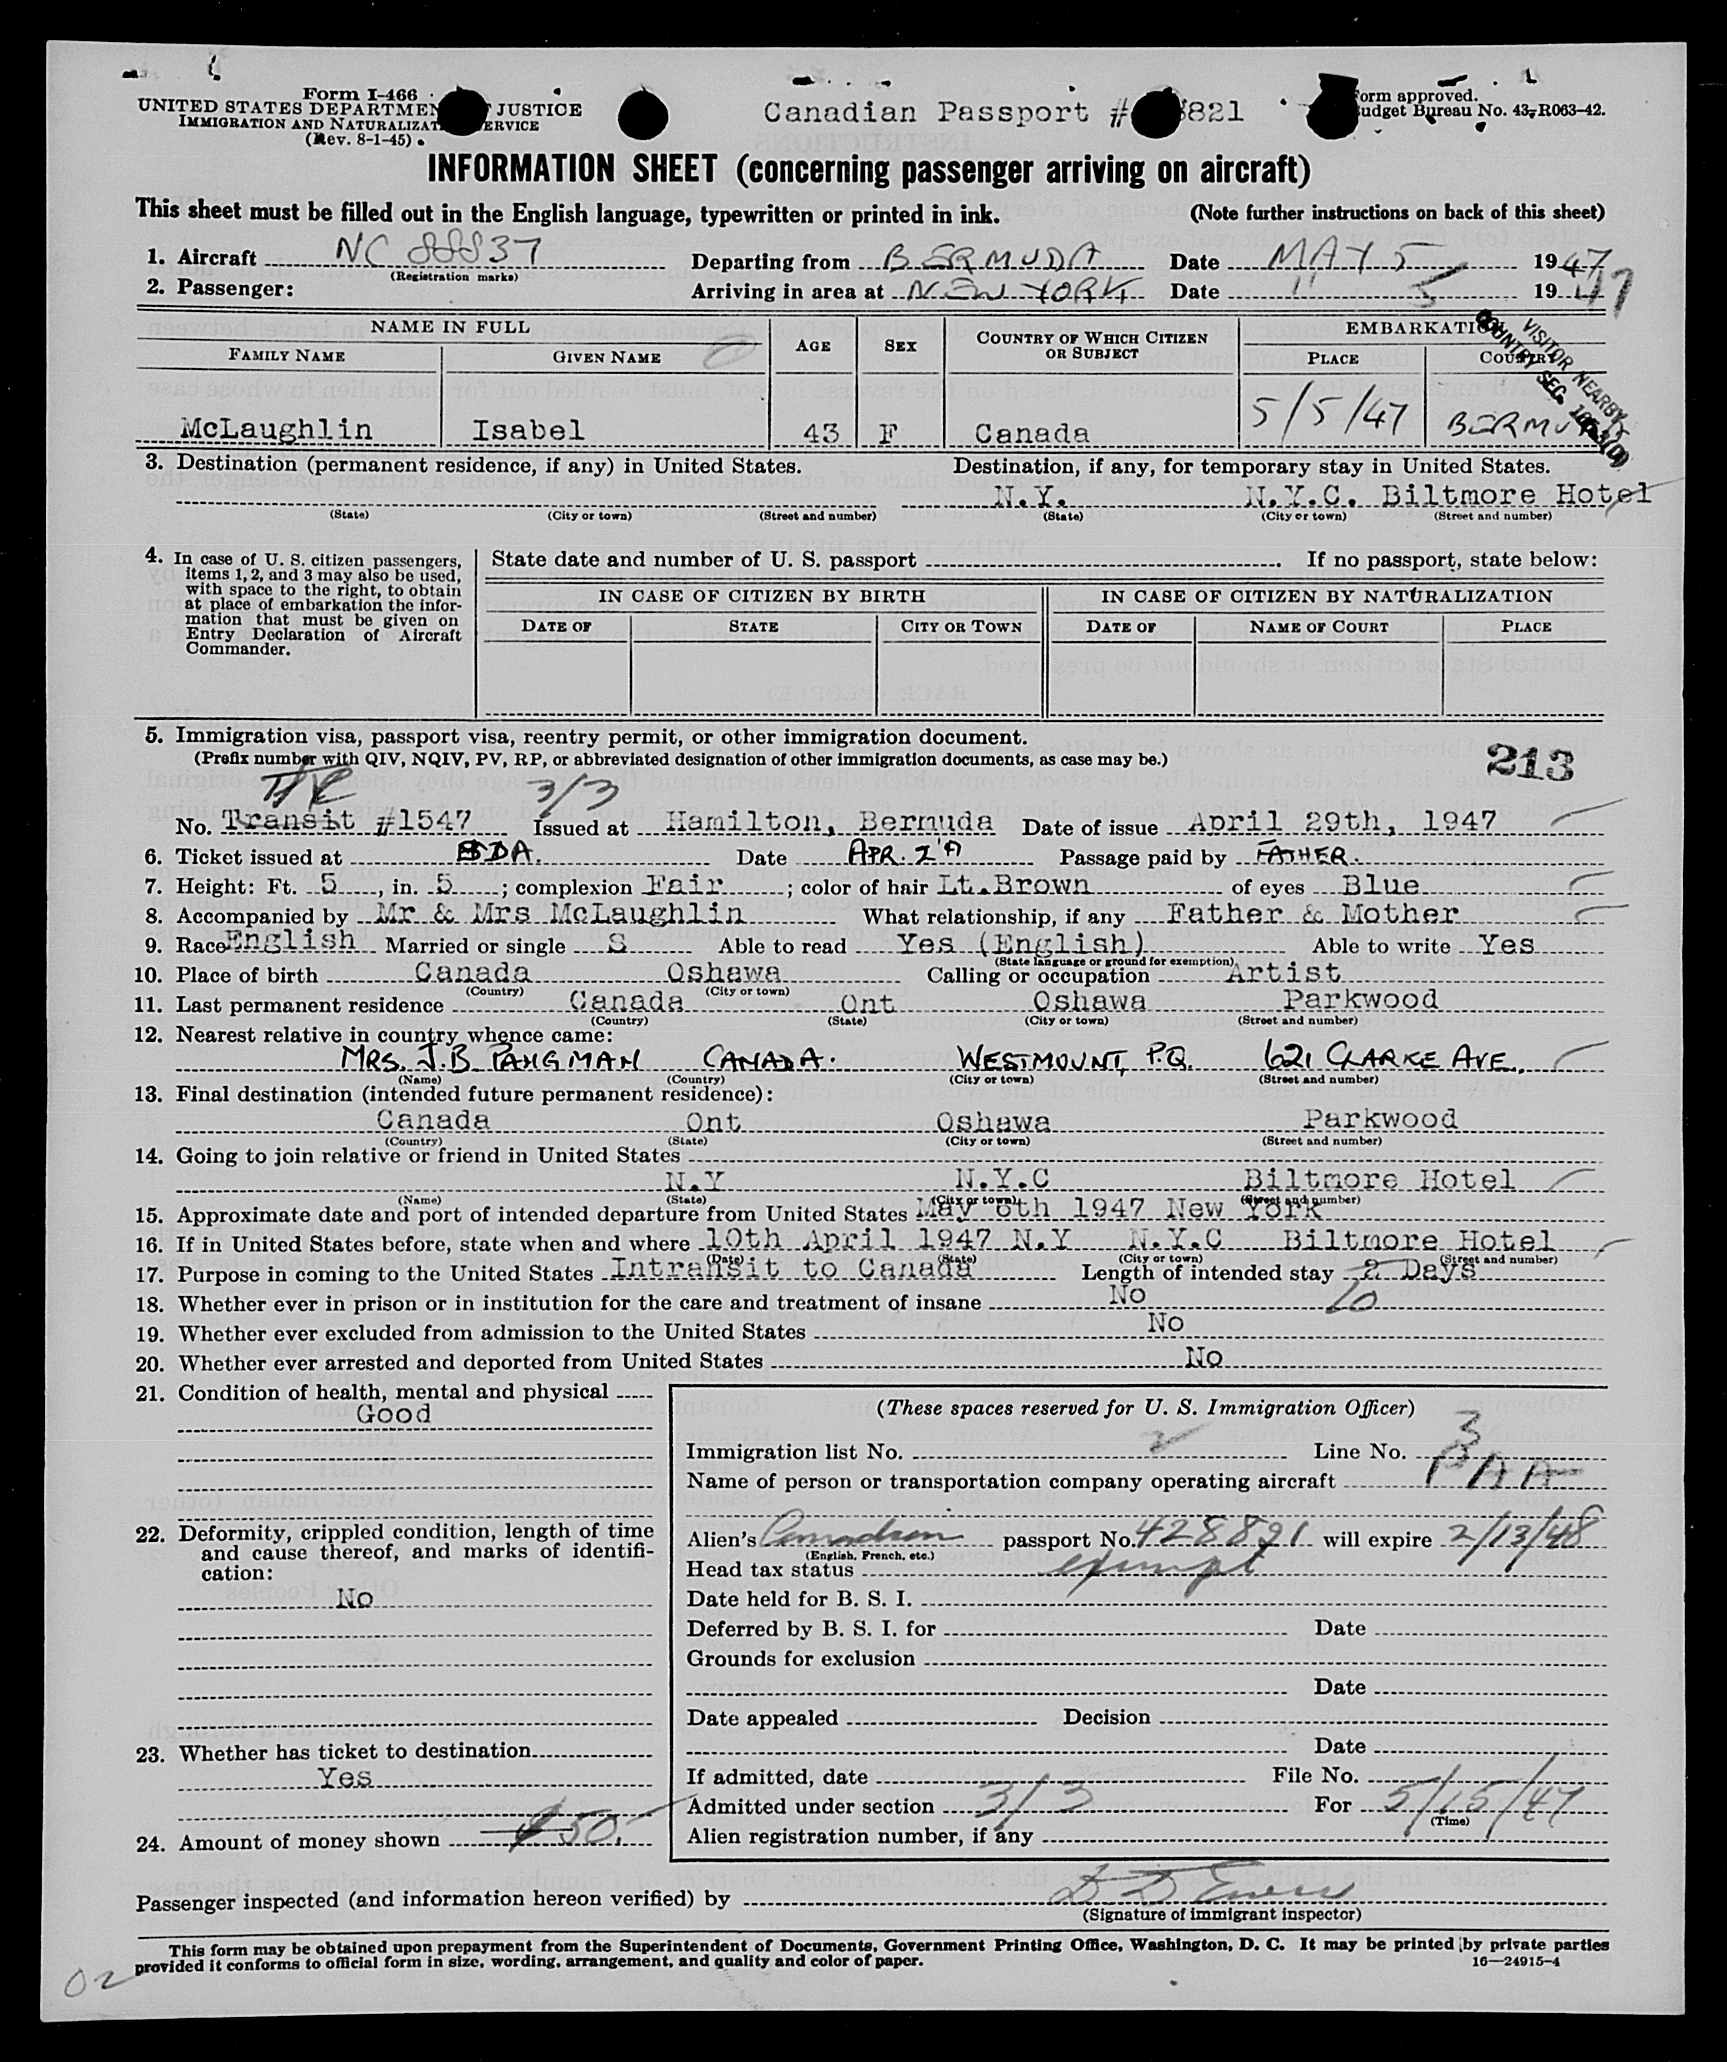 Form I-466
UNITED STATES DEPARTMEN JUSTICE
IMMIGRATION AND NATURALIZAT ERVICE
(Rev. 8-1-45)
Canadian Passport # 821
orm approved.
udget Bureau No. 43-R063-42.
INFORMATION SHEET (concerning passenger arriving on aircraft)
This sheet must be filled out in the English language, typewritten or printed in ink. (Note further instructions on back of this sheet)
1. Aircraft NC 88837 Departing from BERMUDA Date MAY 5 1947
(Registration marks)
2. Passenger: Arriving in area at NEW YORK Date " 5 1947
NAME IN FULL AGE SEX COUNTRY OF WHICH CITIZEN OR SUBJECT EMBARKATIO
FAMILY NAME GIVEN NAME PLACE COUNTRY
VISITOR NEARBY
COUNTRY SEC.
McLaughlin Isabel 43 F Canada 5/5/47 BERMU
3. Destination (permanent residence, if any) in United States. Destination, if any, for temporary stay in United States.
N.Y. N.Y.C. Biltmore Hotel
(State) (City or town) (Street and number) (State) (City or town) (Street and number)
4. In case of U. S. citizen passengers, items 1, 2, and 3 may also be used, with space to the right, to obtain at place of embarkation the information that must be given on Entry Declaration of Aircraft Commander.
State date and number of U. S. passport . If no passport, state below:
IN CASE OF CITIZEN BY BIRTH IN CASE OF CITIZEN BY NATURALIZATION
DATE OF STATE CITY OR TOWN DATE OF NAME OF COURT PLACE
5. Immigration visa, passport visa, reentry permit, or other immigration document.
(Prefix number with QIV, NQIV, PV, RP, or abbreviated designation of other immigration documents, as case may be.)
213
3/3
No. Transit #1547 Issued at Hamilton, Bermuda Date of issue April 29th, 1947
6. Ticket issued at BDA. Date APR. Passage paid by FATHER.
7. Height: Ft. 5, in. 5; complexion Fair; color of hair Lt.Brown of eyes Blue
8. Accompanied by Mr & Mrs McLaughlin What relationship, if any Father & Mother
9. Race English Married or single S Able to read Yes (English) Able to write Yes
(State language or ground for exemption)
10. Place of birth Canada Oshawa Calling or occupation Artist
(Country) (City or town)
11. Last permanent residence Canada Ont Oshawa Parkwood
(Country) (State) (City or town) (Street and number)
12. Nearest relative in country whence came:
MRS. J.B PANGMAN CANADA. WESTMOUNT, P.Q. 621 CLARKE AVE.
(Name) (Country) (City or town) (Street and number)
13. Final destination (intended future permanent residence):
Canada Ont Oshawa Parkwood
(Country) (State) (City or town) (Street and number)
14. Going to join relative or friend in United States
N.Y N.Y.C Biltmore Hotel
(Name) (State) (City or town) (Street and number)
15. Approximate date and port of intended departure from United States May 6th 1947 New York
16. If in United States before, state when and where 10th April 1947 N.Y N.Y.C Biltmore Hotel
(Date) (State) (City or town) (Street and number)
17. Purpose in coming to the United States Intransit to Canada Length of intended stay 2 Days
10
18. Whether ever in prison or in institution for the care and treatment of insane No
19. Whether ever excluded from admission to the United States No
20. Whether ever arrested and deported from United States No
21. Condition of health, mental and physical
Good
22. Deformity, crippled condition, length of time and cause thereof, and marks of identification:
No
23. Whether has ticket to destination
Yes
24. Amount of money shown $50.
(These spaces reserved for U. S. Immigration Officer)
Immigration list No. 2 Line No. 3
Name of person or transportation company operating aircraft PAA
Alien's Canadian passport No. 428821 will expire 2/13/48
(English, French, etc.)
Head tax status exempt
Date held for B. S. I.
Deferred by B. S. I. for Date
Grounds for exclusion
Date
Date appealed Decision
Date
If admitted, date File No.
Admitted under section 3/3 For 5/15/47
(Time)
Alien registration number, if any
Passenger inspected (and information hereon verified) by
(Signature of immigrant inspector)
This form may be obtained upon prepayment from the Superintendent of Documents, Government Printing Office, Washington, D. C. It may be printed by private parties
provided it conforms to official form in size, wording, arrangement, and quality and color of paper. 16—24915-4
02